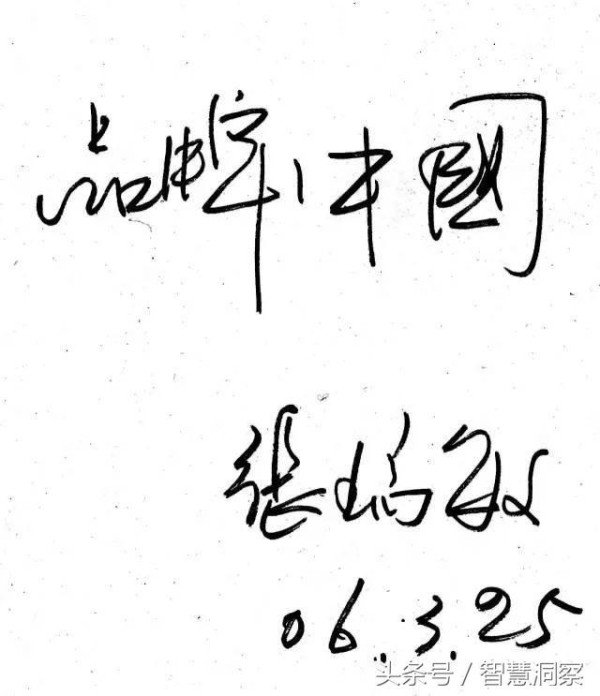 品牌中國
张瑞敏
06.3.25
头条号/智慧洞察